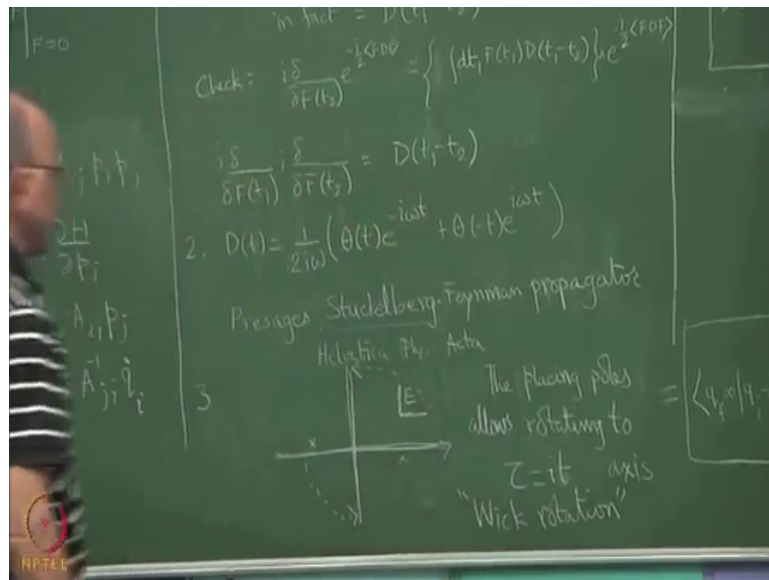 in fact = D(t₁-t₂)
|F=0
Check: iδ/δF(t₂) e^{-i/2<FDF>} = { ∫dt₁ F(t₁) D(t₁-t₂) } e^{-i/2<FDF>}
iδ/δF(t₁) iδ/δF(t₂) = D(t₁-t₂)
2. D(t) = 1/2iω (θ(t)e^{-iωt} + θ(-t)e^{iωt})
Presages Stuckelberg-Feynman propagator
Helvetica Phy.. Acta
3
E
x
The placing poles
allows rotating to
τ=it axis
"Wick rotation"
A_{ij} p_j
A^{-1}_{ji} q̇_i
=
NPTEL